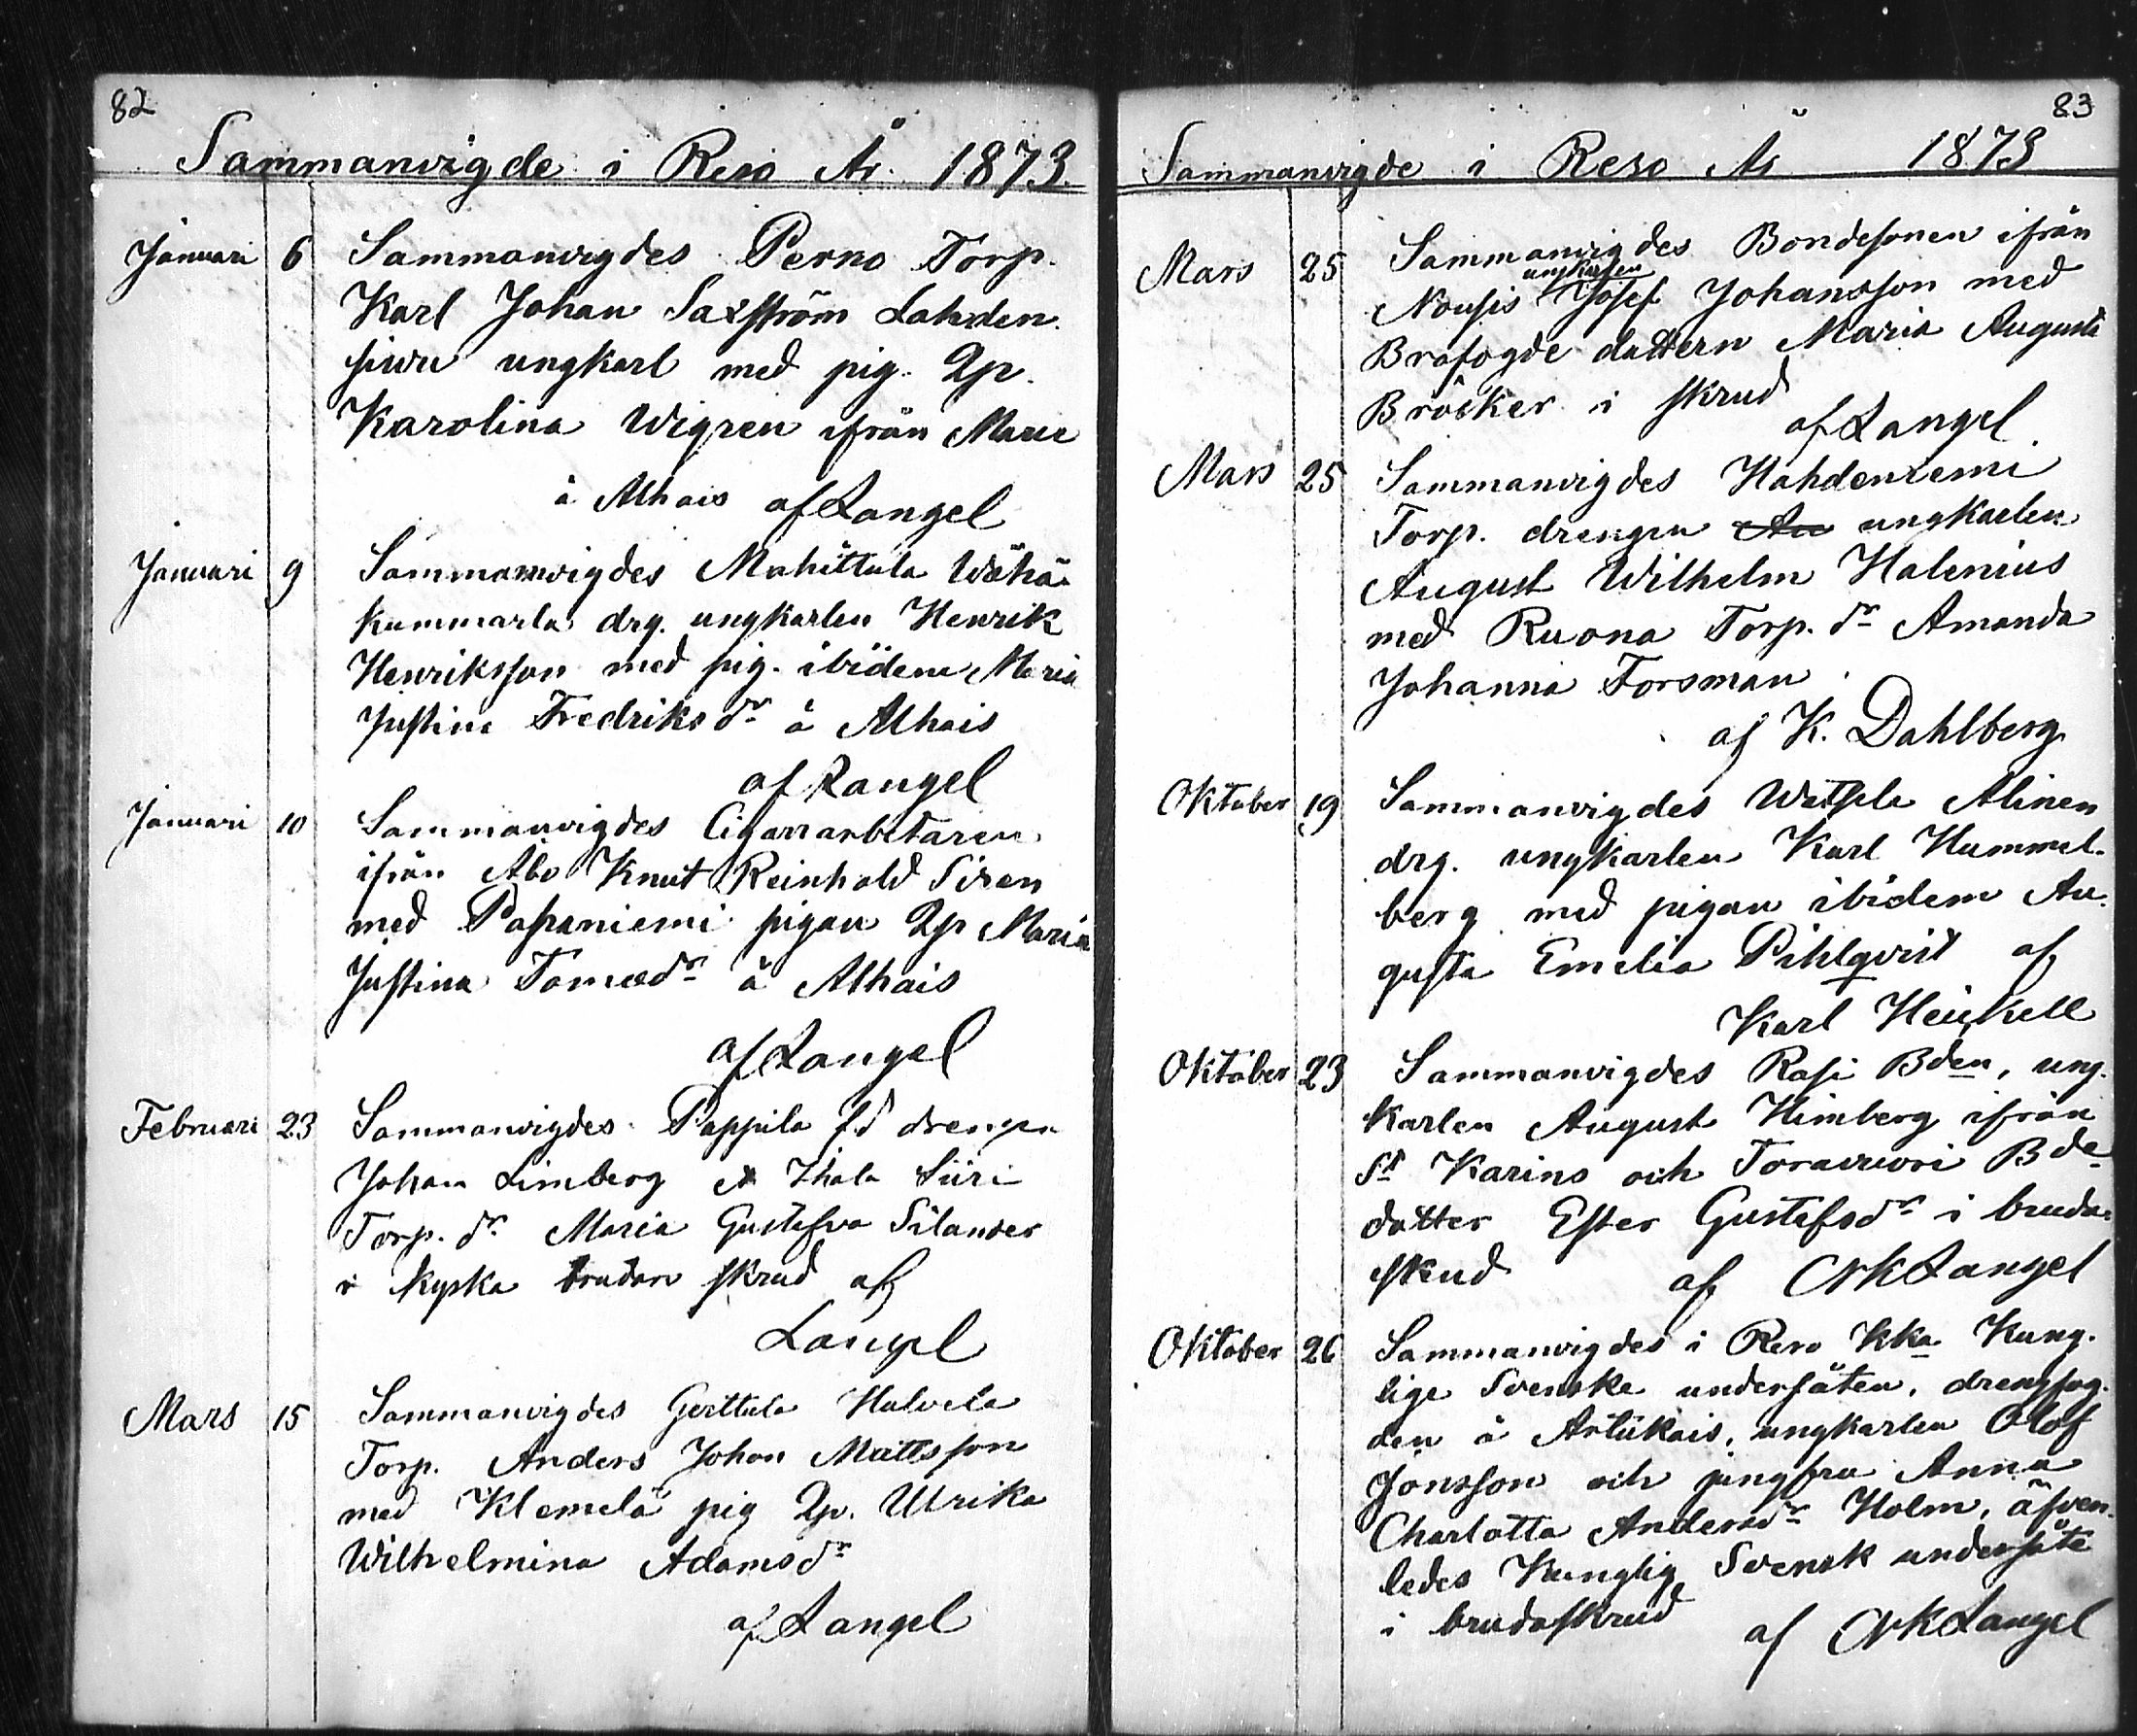 82
Sammanvigde i Reso År. 1873.
Januari 6 Sammanvigdes Perno Torp.
Karl Johan Saxström Lahden
siwu ungkarl med pig. Qp.
Karolina Wigren ifrån Masu
å Alhais af Langel
Januari 9 Sammanvigdes Mahittula Wähä
kummarla drg. ungkarlen Henrik
Henriksson med pig. ibidem Maria
Justina Fredriksdr å Alhais
af Langel
Januari 10 Sammanvigdes Cigarrarbetaren
ifrån Åbo Knut Reinhold Siren
med Papaniemi pigan Qp Maria
Justina Tomasdr å Alhais
af Langel
Februari 23 Sammanvigdes Pappila f.d drengen
Johan Limberg Ihala Siiri
Torp. dr Maria Gustafva Silander
i kyska brudare skrud af
Langel
Mars 15 Sammanvigdes Gerttula Halvela
Torp. Anders Johan Mattsson
med Klemelä pig Qp. Ulrika
Wilhelmina Adamsdr
af Langel
83
Sammanvigde i Reso År 1873
Mars 25 Sammanvigdes Bondesonen ifrån
ungkarlen
Nousis Josef Johansson med
Brofogde dottern Maria Augusta
Bröcker i skrud
af Langel
Mars 25 Sammanvigdes Hahdenniemi
Torp. drengen An ungkarlen
August Wilhelm Halenius
med Ruona Torp. dr Amanda
Johanna Forsman
af K. Dahlberg
Oktober 19 Sammanvigdes Watsela Alinen
drg. ungkarlen Karl Hummel-
berg med pigan ibidem Au-
gusta Emelia Pihlqvist af
Karl Heickell
Oktober 23 Sammanvigdes Rasi Bden, ung-
karlen August Himberg ifrån
St Karins och Toravuori Bde
dotter Ester Gustafsdr i bruda-
skrud af CNK Langel
Oktober 26 Sammanvigdes i Reso Kka Kung-
lige Svenske undersåten, drengfog-
den å Artukais, ungkarlen Olof
Jonsson och jungfru Anna
Charlotta Andersdr Holm, äfven-
ledes Kunglig Svensk undersåte
i brudaskrud af CNK Langel